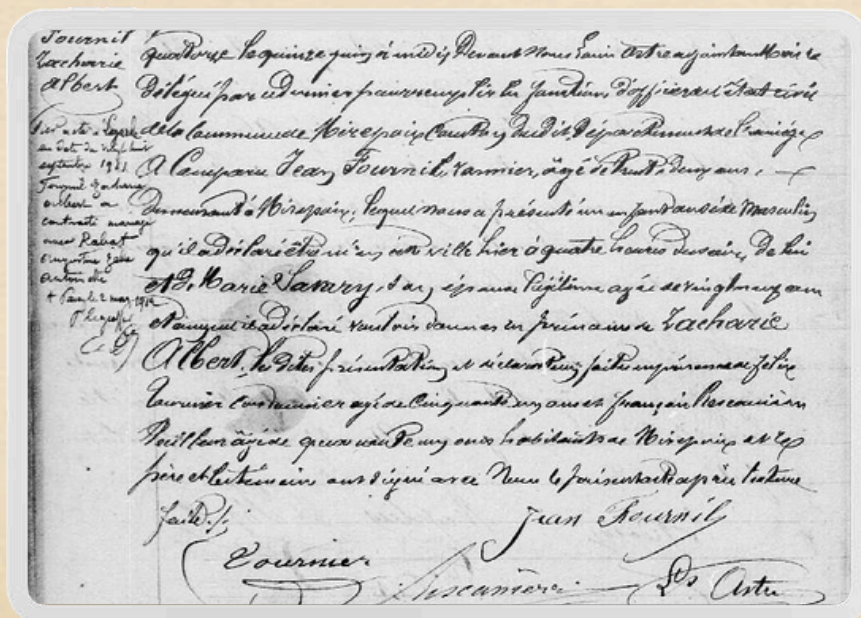 Fournil
Zacharie
Albert
Par acte à
en date du vingt huit
septembre 1911
Fournil Zacharie
Albert a
contracté mariage
avec Rabat
Augustine
quatorze le quinze juin à midi Devant nous Louis Astre adjoint au Maire
délégué par ce dernier pour remplir les fonctions d'officier de l'état civil
de la Commune de Mirepoix Canton dudit Département de l'ariége
A Comparu Jean Fournil, vannier, âgé de trente deux ans,
demeurant à Mirepoix, lequel nous a présenté un enfant du sexe Masculin
qu'il a déclaré être né en cette ville hier à quatre heures du soir, de lui
et de Marie Savary, son épouse légitime agée de vingt neuf ans
et auquel il a déclaré vouloir donner les prénoms de Zacharie
Albert. les dites présentation et déclaration faites en présence de félix
Tournier cordonnier agé de Cinquante un ans et françois Rescanières
tailleur âgé de quarante un ans habitants de Mirepoix et les
père et les témoins ont signé avec Nous le présent acte après lecture
faite./.
Jean Fournil
Tournier
Rescanières
Ls Astre